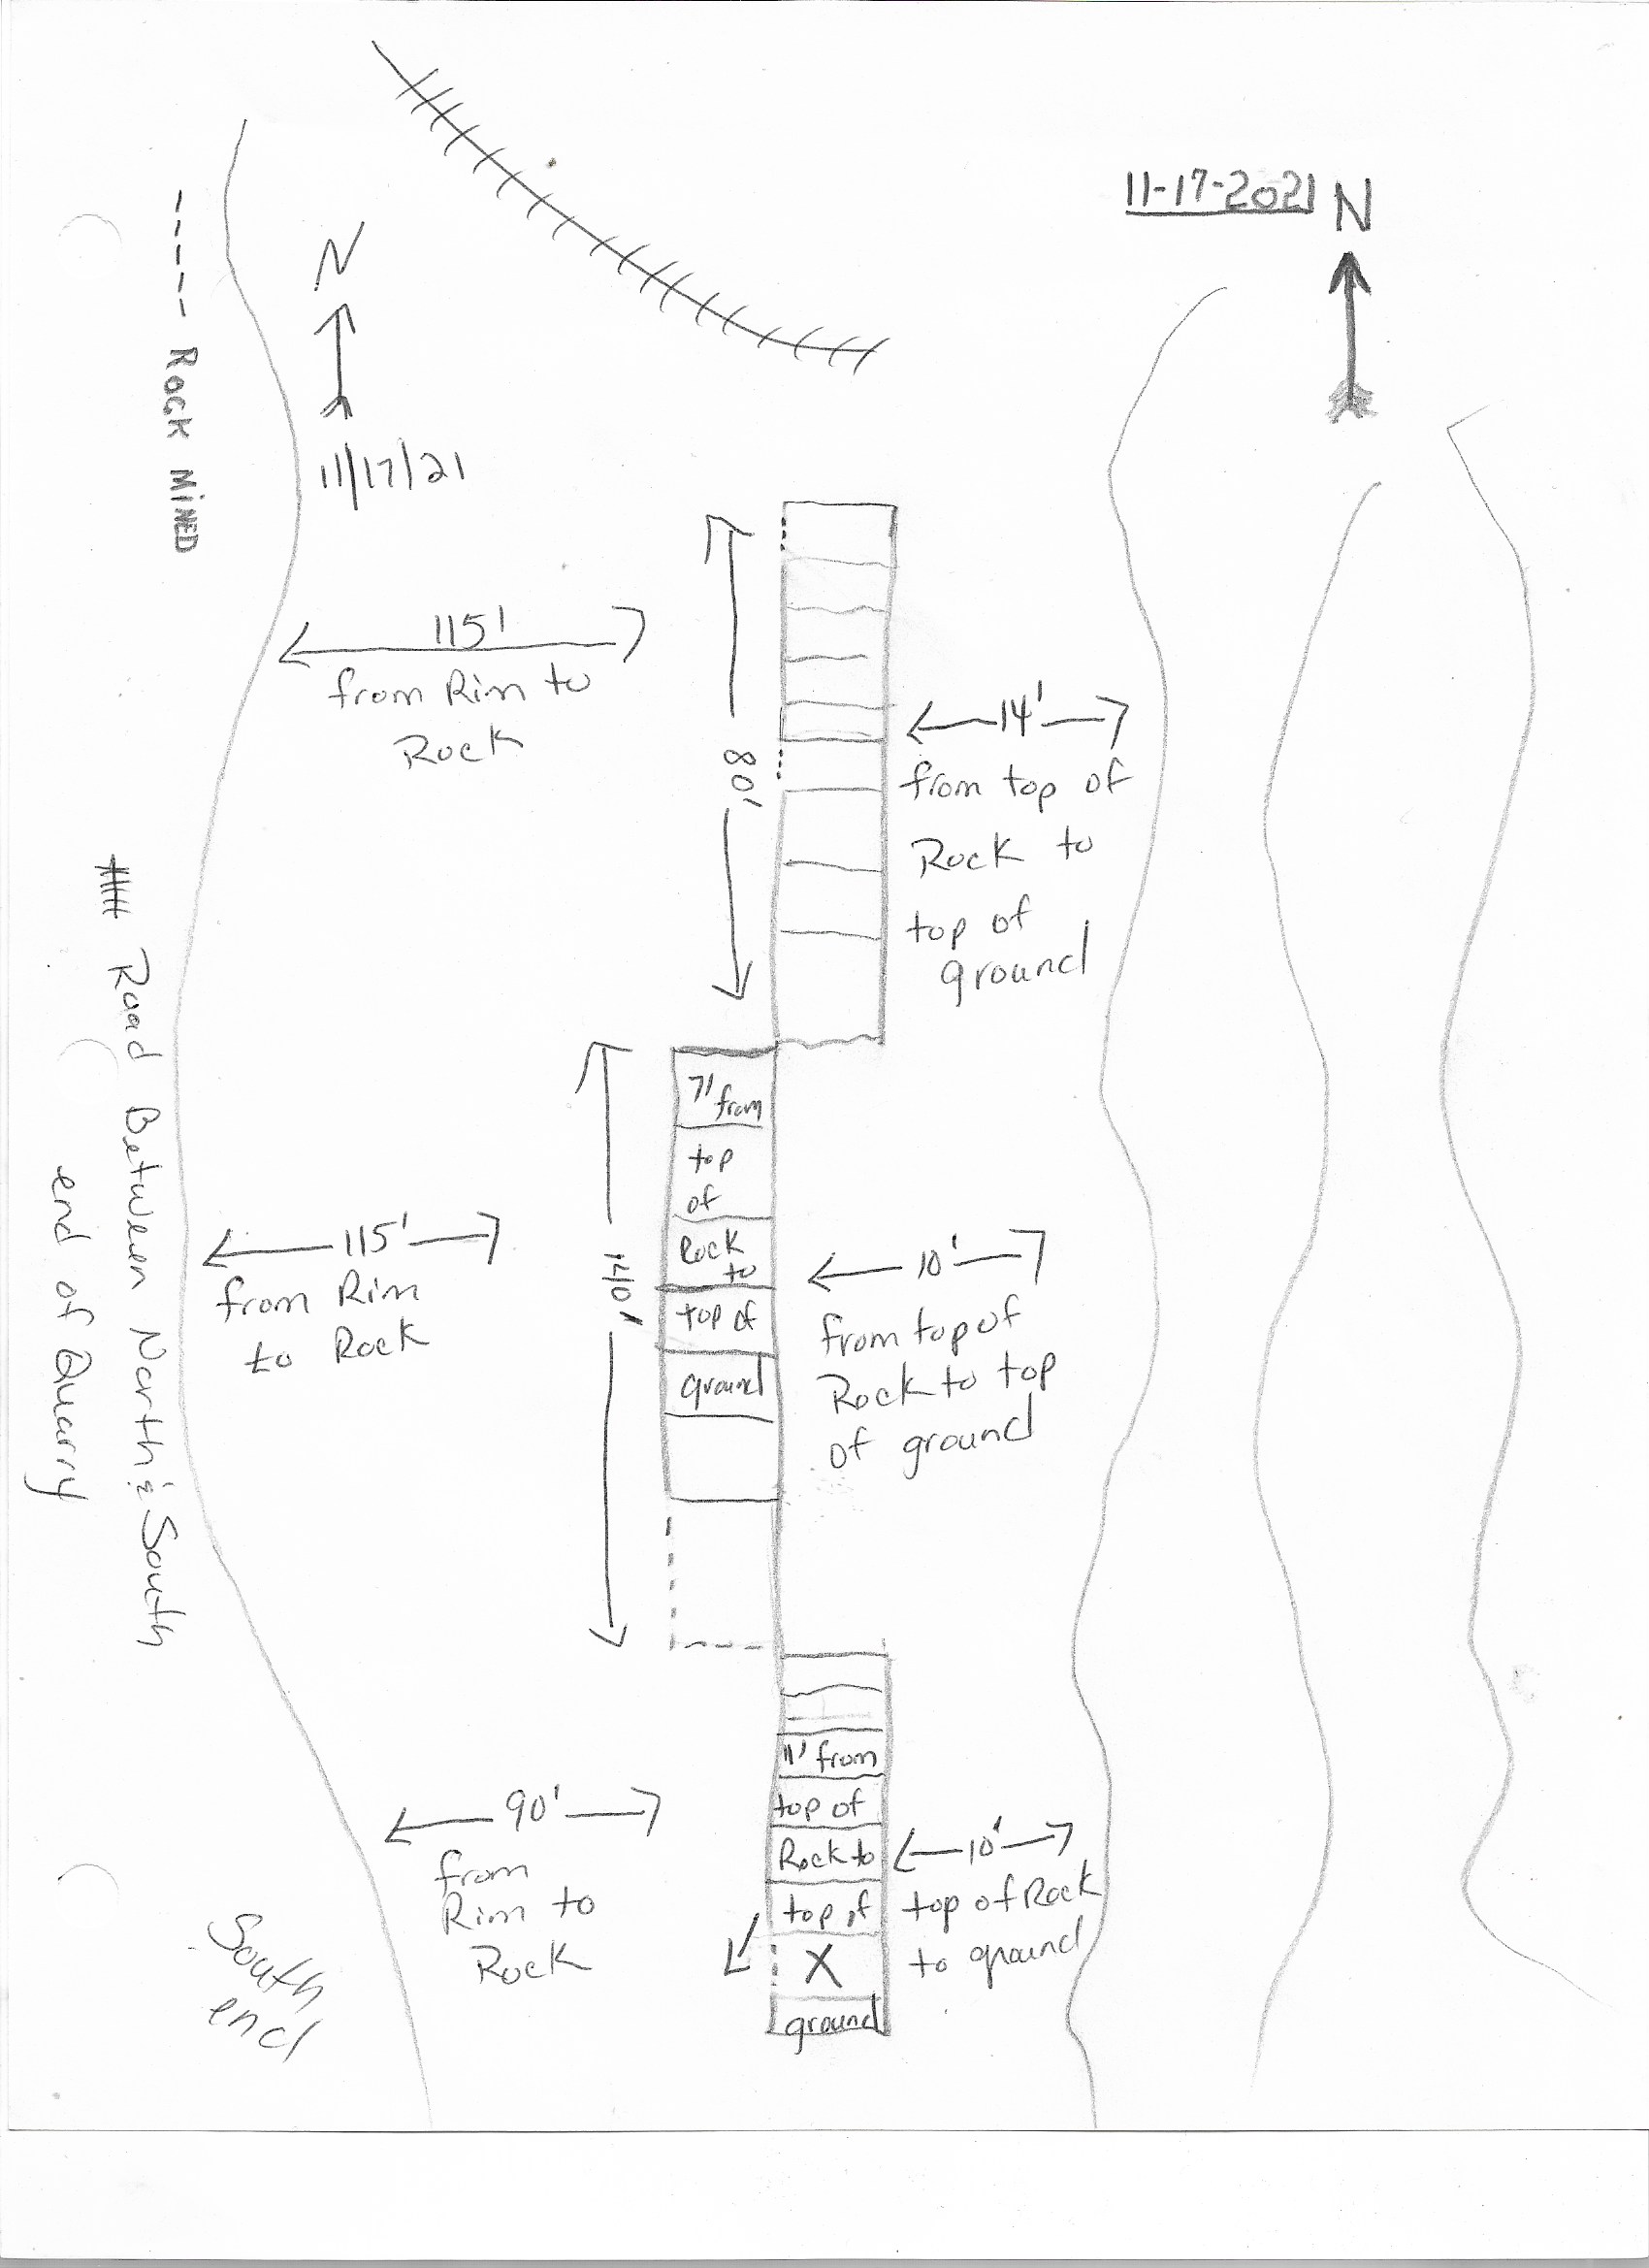 11-17-2021 N
N
11/17/21
---- ROCK MINED
115'
from Rim to
Rock
80'
14'
from top of
Rock to
top of
ground
Road Between North & South
end of Quarry
7' from
top
of
Rock
to
top of
ground
140'
115'
from Rim
to Rock
10'
from top of
Rock to top
of ground
11' from
top of
Rock to
top of
X
ground
90'
from
Rim to
Rock
10'
top of Rock
to ground
South
end